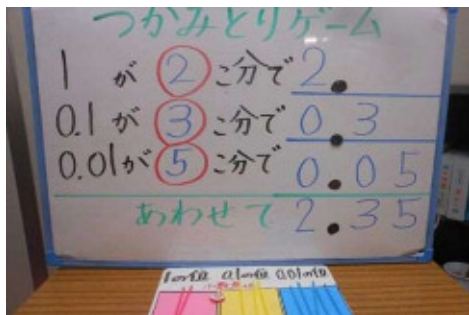 つかみとりゲーム
1 が 2 こ分で 2.
0.1 が 3 こ分で 0.3
0.01 が 5 こ分で 0.05
あわせて 2.35
1の位 0.1の位 0.01の位